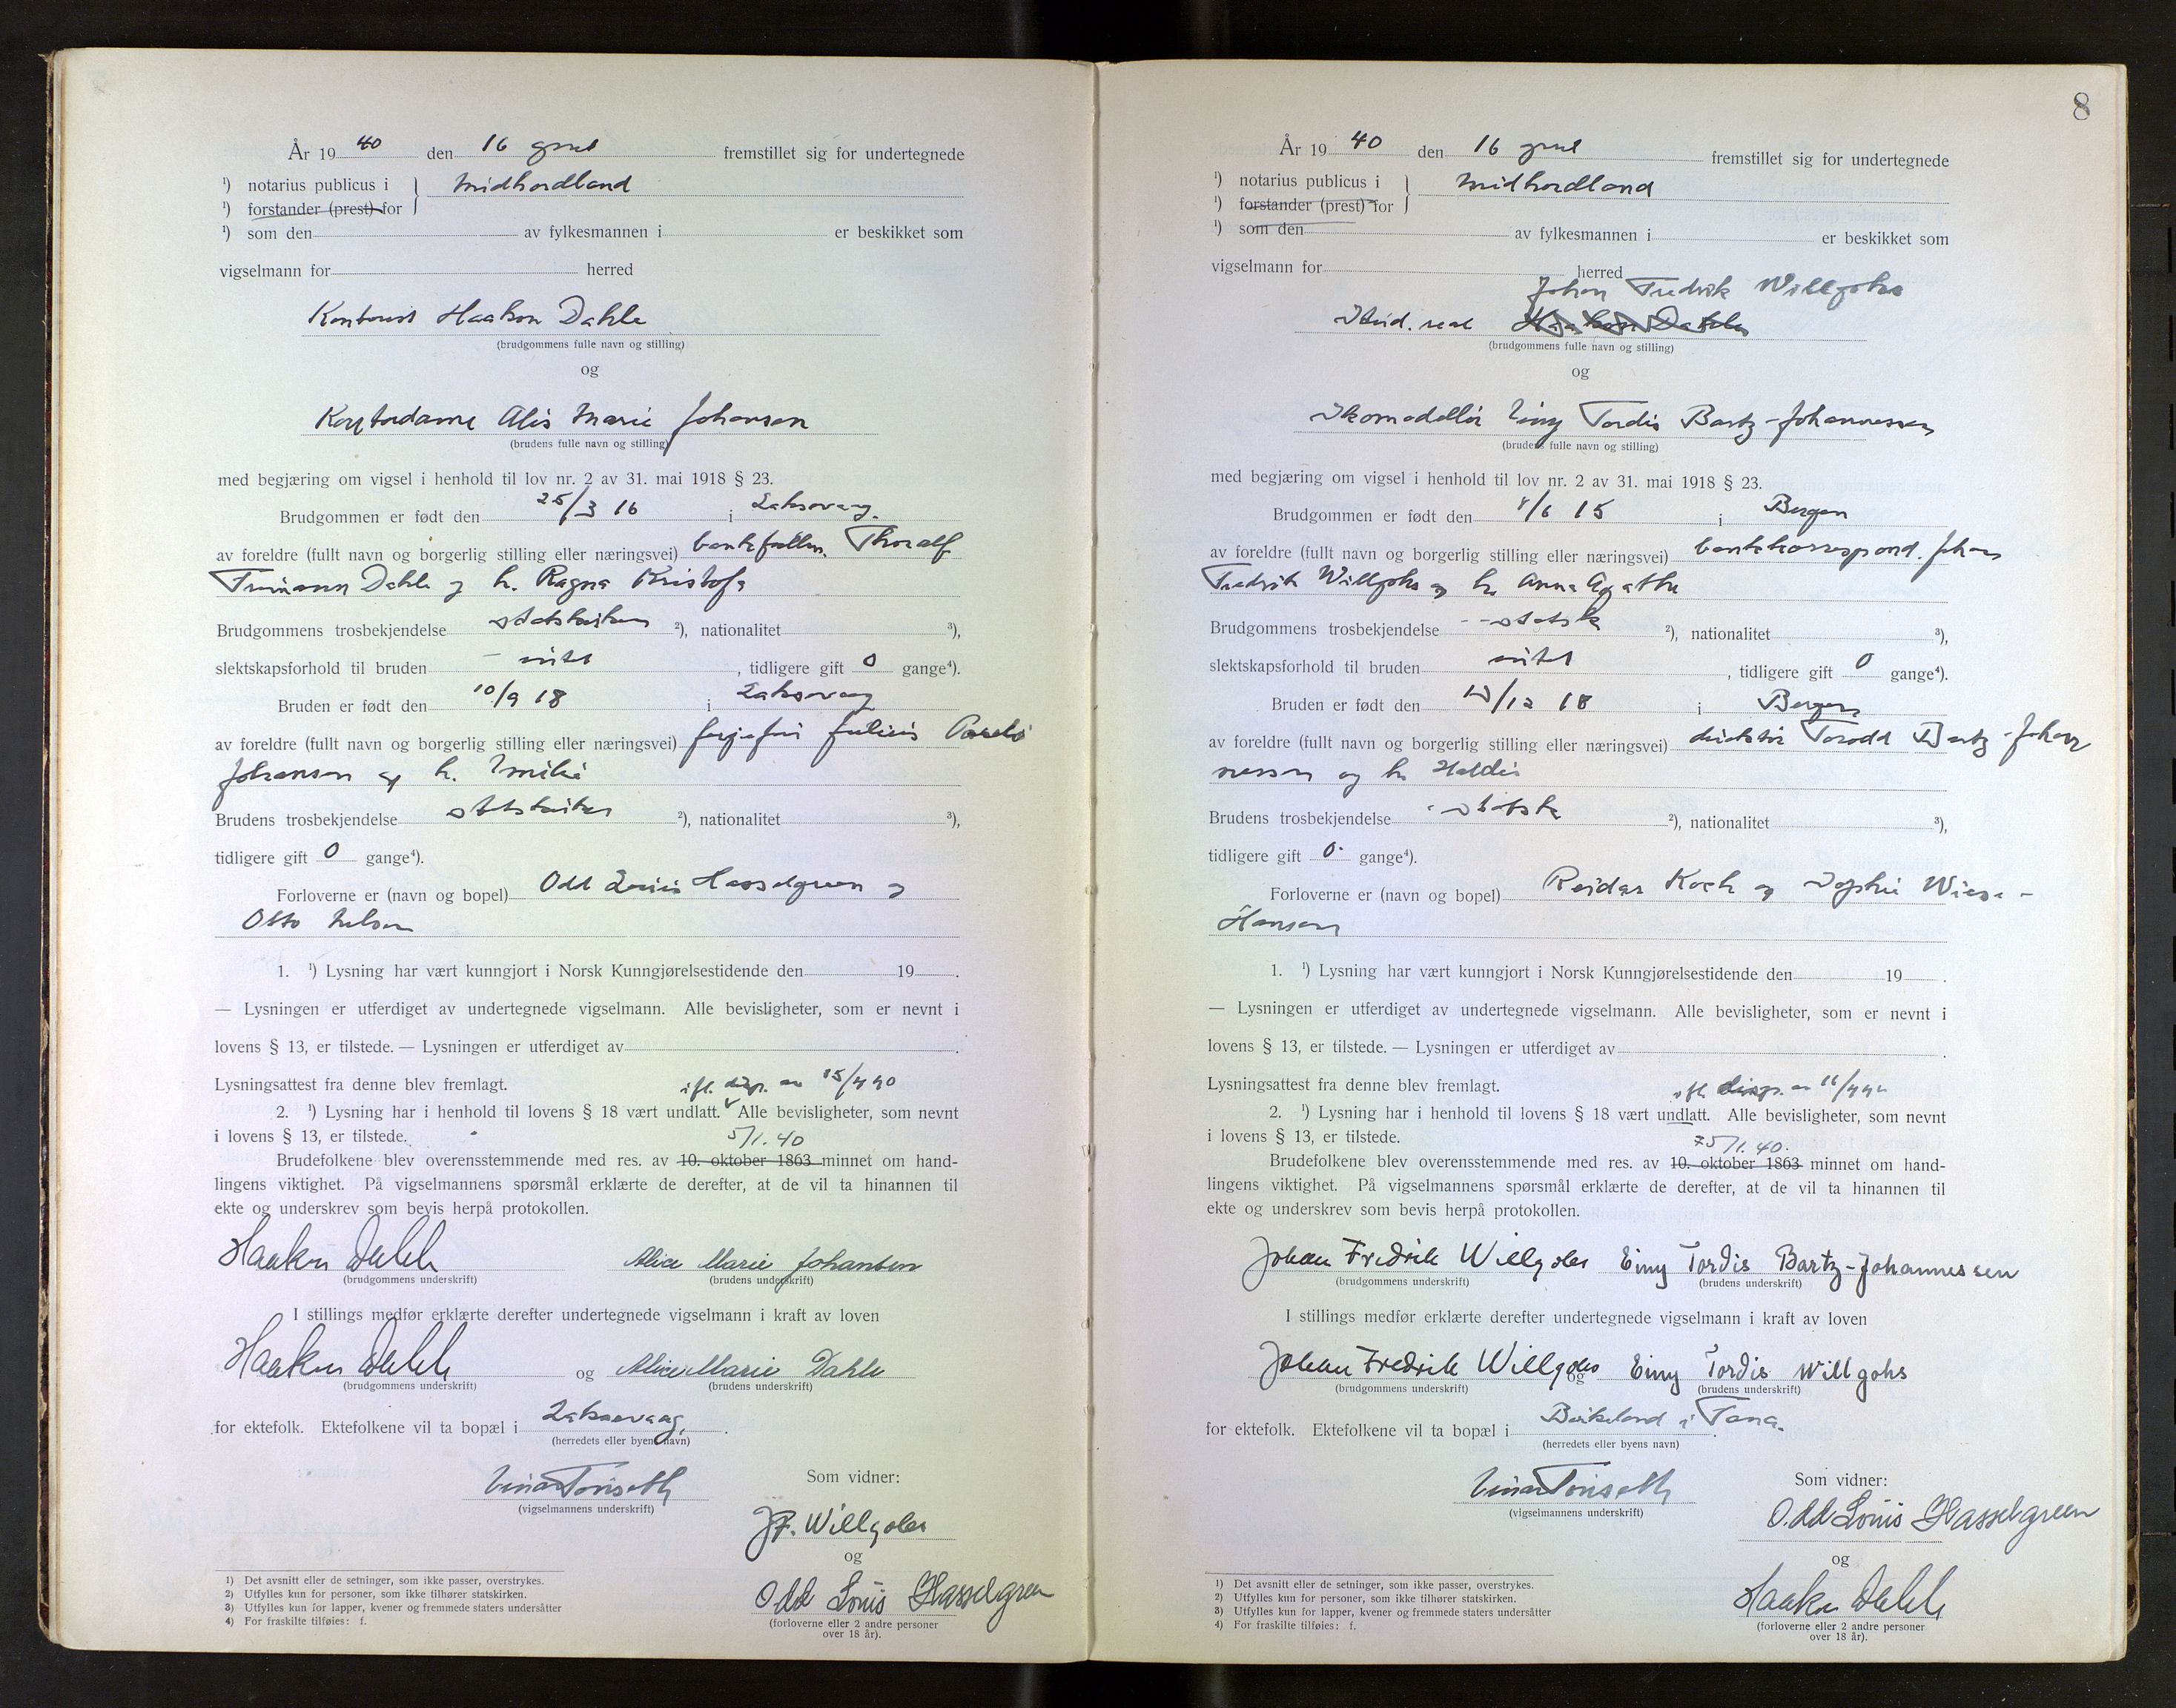 År 1940 den 16 april fremstillet sig for undertegnede
¹) notarius publicus i } Midhordland
¹) forstander (prest) for
¹) som den av fylkesmannen i er beskikket som
vigselmann for herred
Kontorist Haakon Dahle
(brudgommens fulle navn og stilling)
og
Kontordame Alis Marie Johansen
(brudens fulle navn og stilling)
med begjæring om vigsel i henhold til lov nr. 2 av 31. mai 1918 § 23.
Brudgommen er født den 25/3 16 i Laksevaag.
av foreldre (fullt navn og borgerlig stilling eller næringsvei) Thoralf
Dahle og h. Ragna
Brudgommens trosbekjendelse statskirken ²), nationalitet ³),
slektskapsforhold til bruden - intet, tidligere gift 0 gange⁴).
Bruden er født den 10/9 18 i Laksevaag
av foreldre (fullt navn og borgerlig stilling eller næringsvei) Julius
Johansen og h. Emilie
Brudens trosbekjendelse statskirken ²), nationalitet ³),
tidligere gift 0 gange⁴).
Forloverne er (navn og bopel) Odd Louis Hasselgreen og
Otto Nelson
1. ¹) Lysning har vært kunngjort i Norsk Kunngjørelsestidende den 19 .
— Lysningen er utferdiget av undertegnede vigselmann. Alle bevisligheter, som er nevnt i
lovens § 13, er tilstede. — Lysningen er utferdiget av .
Lysningsattest fra denne blev fremlagt. ifl. disp. av 15/4 40
2. ¹) Lysning har i henhold til lovens § 18 vært undlatt. Alle bevisligheter, som nevnt
i lovens § 13, er tilstede. 5/1. 40
Brudefolkene blev overensstemmende med res. av 10. oktober 1863 minnet om hand-
lingens viktighet. På vigselmannens spørsmål erklærte de derefter, at de vil ta hinannen til
ekte og underskrev som bevis herpå protokollen.
Haakon Dahle Alice Marie Johansen
(brudgommens underskrift) (brudens underskrift)
I stillings medfør erklærte derefter undertegnede vigselmann i kraft av loven
Haakon Dahle og Alice Marie Dahle
(brudgommens underskrift) (brudens underskrift)
for ektefolk. Ektefolkene vil ta bopæl i Laksevaag.
(herredets eller byens navn)
Einar Tønseth
(vigselmannens underskrift)
Som vidner:
J.F. Willgohs
og
Odd Louis Hasselgreen
(forloverne eller 2 andre personer
over 18 år).
1) Det avsnitt eller de setninger, som ikke passer, overstrykes.
2) Utfylles kun for personer, som ikke tilhører statskirken.
3) Utfylles kun for lapper, kvener og fremmede staters undersåtter
4) For fraskilte tilføies: f.
8
År 1940 den 16 april fremstillet sig for undertegnede
¹) notarius publicus i } Midhordland
¹) forstander (prest) for
¹) som den av fylkesmannen i er beskikket som
vigselmann for herred
Johan Fredrik Willgohs
Stud. real Haakon Dahle
(brudgommens fulle navn og stilling)
og
Einy Tordis Bartz-Johannessen
(brudens fulle navn og stilling)
med begjæring om vigsel i henhold til lov nr. 2 av 31. mai 1918 § 23.
Brudgommen er født den /6 15 i Bergen
av foreldre (fullt navn og borgerlig stilling eller næringsvei) bankkorrespond. Johan
Fredrik Willgohs og h. Anna Agathe
Brudgommens trosbekjendelse statsk ²), nationalitet ³),
slektskapsforhold til bruden intet, tidligere gift 0 gange⁴).
Bruden er født den /12 18 i Bergen
av foreldre (fullt navn og borgerlig stilling eller næringsvei) direktør Torodd Bartz-Johan
nessen og h. Haldis
Brudens trosbekjendelse statsk ²), nationalitet ³),
tidligere gift 0 gange⁴).
Forloverne er (navn og bopel) Reidar Koch og Sophie Wiese-
Hansen
1. ¹) Lysning har vært kunngjort i Norsk Kunngjørelsestidende den 19 .
— Lysningen er utferdiget av undertegnede vigselmann. Alle bevisligheter, som er nevnt i
lovens § 13, er tilstede. — Lysningen er utferdiget av .
Lysningsattest fra denne blev fremlagt. ifl. disp. av
2. ¹) Lysning har i henhold til lovens § 18 vært undlatt. Alle bevisligheter, som nevnt
i lovens § 13, er tilstede. 5/1. 40.
Brudefolkene blev overensstemmende med res. av 10. oktober 1863 minnet om hand-
lingens viktighet. På vigselmannens spørsmål erklærte de derefter, at de vil ta hinannen til
ekte og underskrev som bevis herpå protokollen.
Johan Fredrik Willgohs Einy Tordis Bartz-Johannessen
(brudgommens underskrift) (brudens underskrift)
I stillings medfør erklærte derefter undertegnede vigselmann i kraft av loven
Johan Fredrik Willgohs og Einy Tordis Willgohs
(brudgommens underskrift) (brudens underskrift)
for ektefolk. Ektefolkene vil ta bopæl i Birkeland i Fana.
(herredets eller byens navn)
Einar Tønseth
(vigselmannens underskrift)
Som vidner:
Odd Louis Hasselgreen
og
Haakon Dahle
(forloverne eller 2 andre personer
over 18 år).
1) Det avsnitt eller de setninger, som ikke passer, overstrykes.
2) Utfylles kun for personer, som ikke tilhører statskirken.
3) Utfylles kun for lapper, kvener og fremmede staters undersåtter
4) For fraskilte tilføies: f.